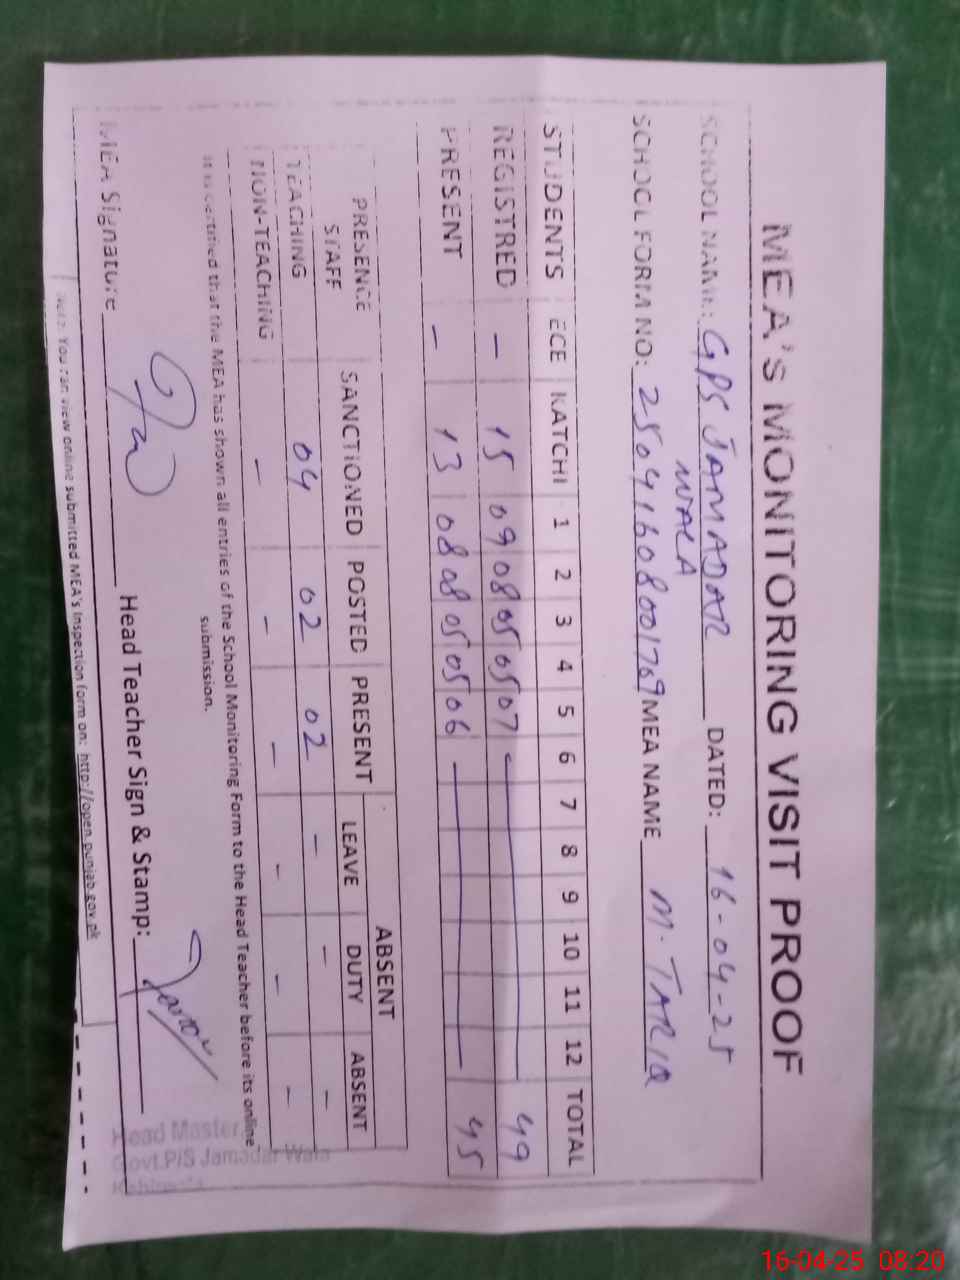 MEA'S MONITORING VISIT PROOF
SCHOOL NAME: GPS JAMADAR DATED: 16-04-25
WALA
SCHOOL FORM NO: 25041608001769 MEA NAME M. TARIQ
STUDENTS ECE KATCHI 1 2 3 4 5 6 7 8 9 10 11 12 TOTAL
REGISTRED - 15 09 08 05 05 07 — 49
PRESENT - 13 08 08 05 05 06 — 45
PRESENCE SANCTIONED POSTED PRESENT ABSENT
STAFF LEAVE DUTY ABSENT
TEACHING 04 02 02 - - -
NON-TEACHING - - - - - -
It is certified that the MEA has shown all entries of the School Monitoring Form to the Head Teacher before its online
submission.
MEA Signature Head Teacher Sign & Stamp:
Head Master
Govt.P/S Jamadar Wala
Note: You can view online submitted MEA's Inspection form on: http://open.punjab.gov.pk
16-04-25 08:20